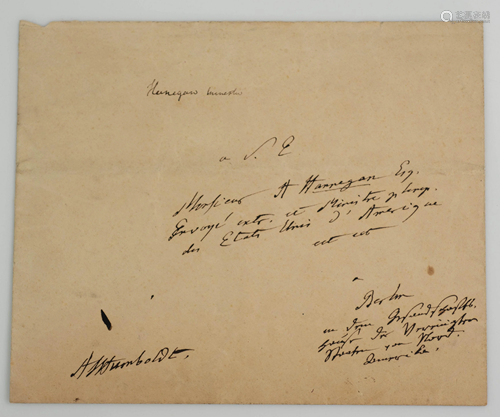 Hannegan
a S. E
Monsieur A Hannegan Esq.
Envoyé extr. et Ministre plenip.
des Etats Unis d'Amerique
ect ect
a
Berlin
in dem Gesandschaftl.
Hause der Vereinigten
Staaten von Nord.
Amerika.
AlHumboldt.